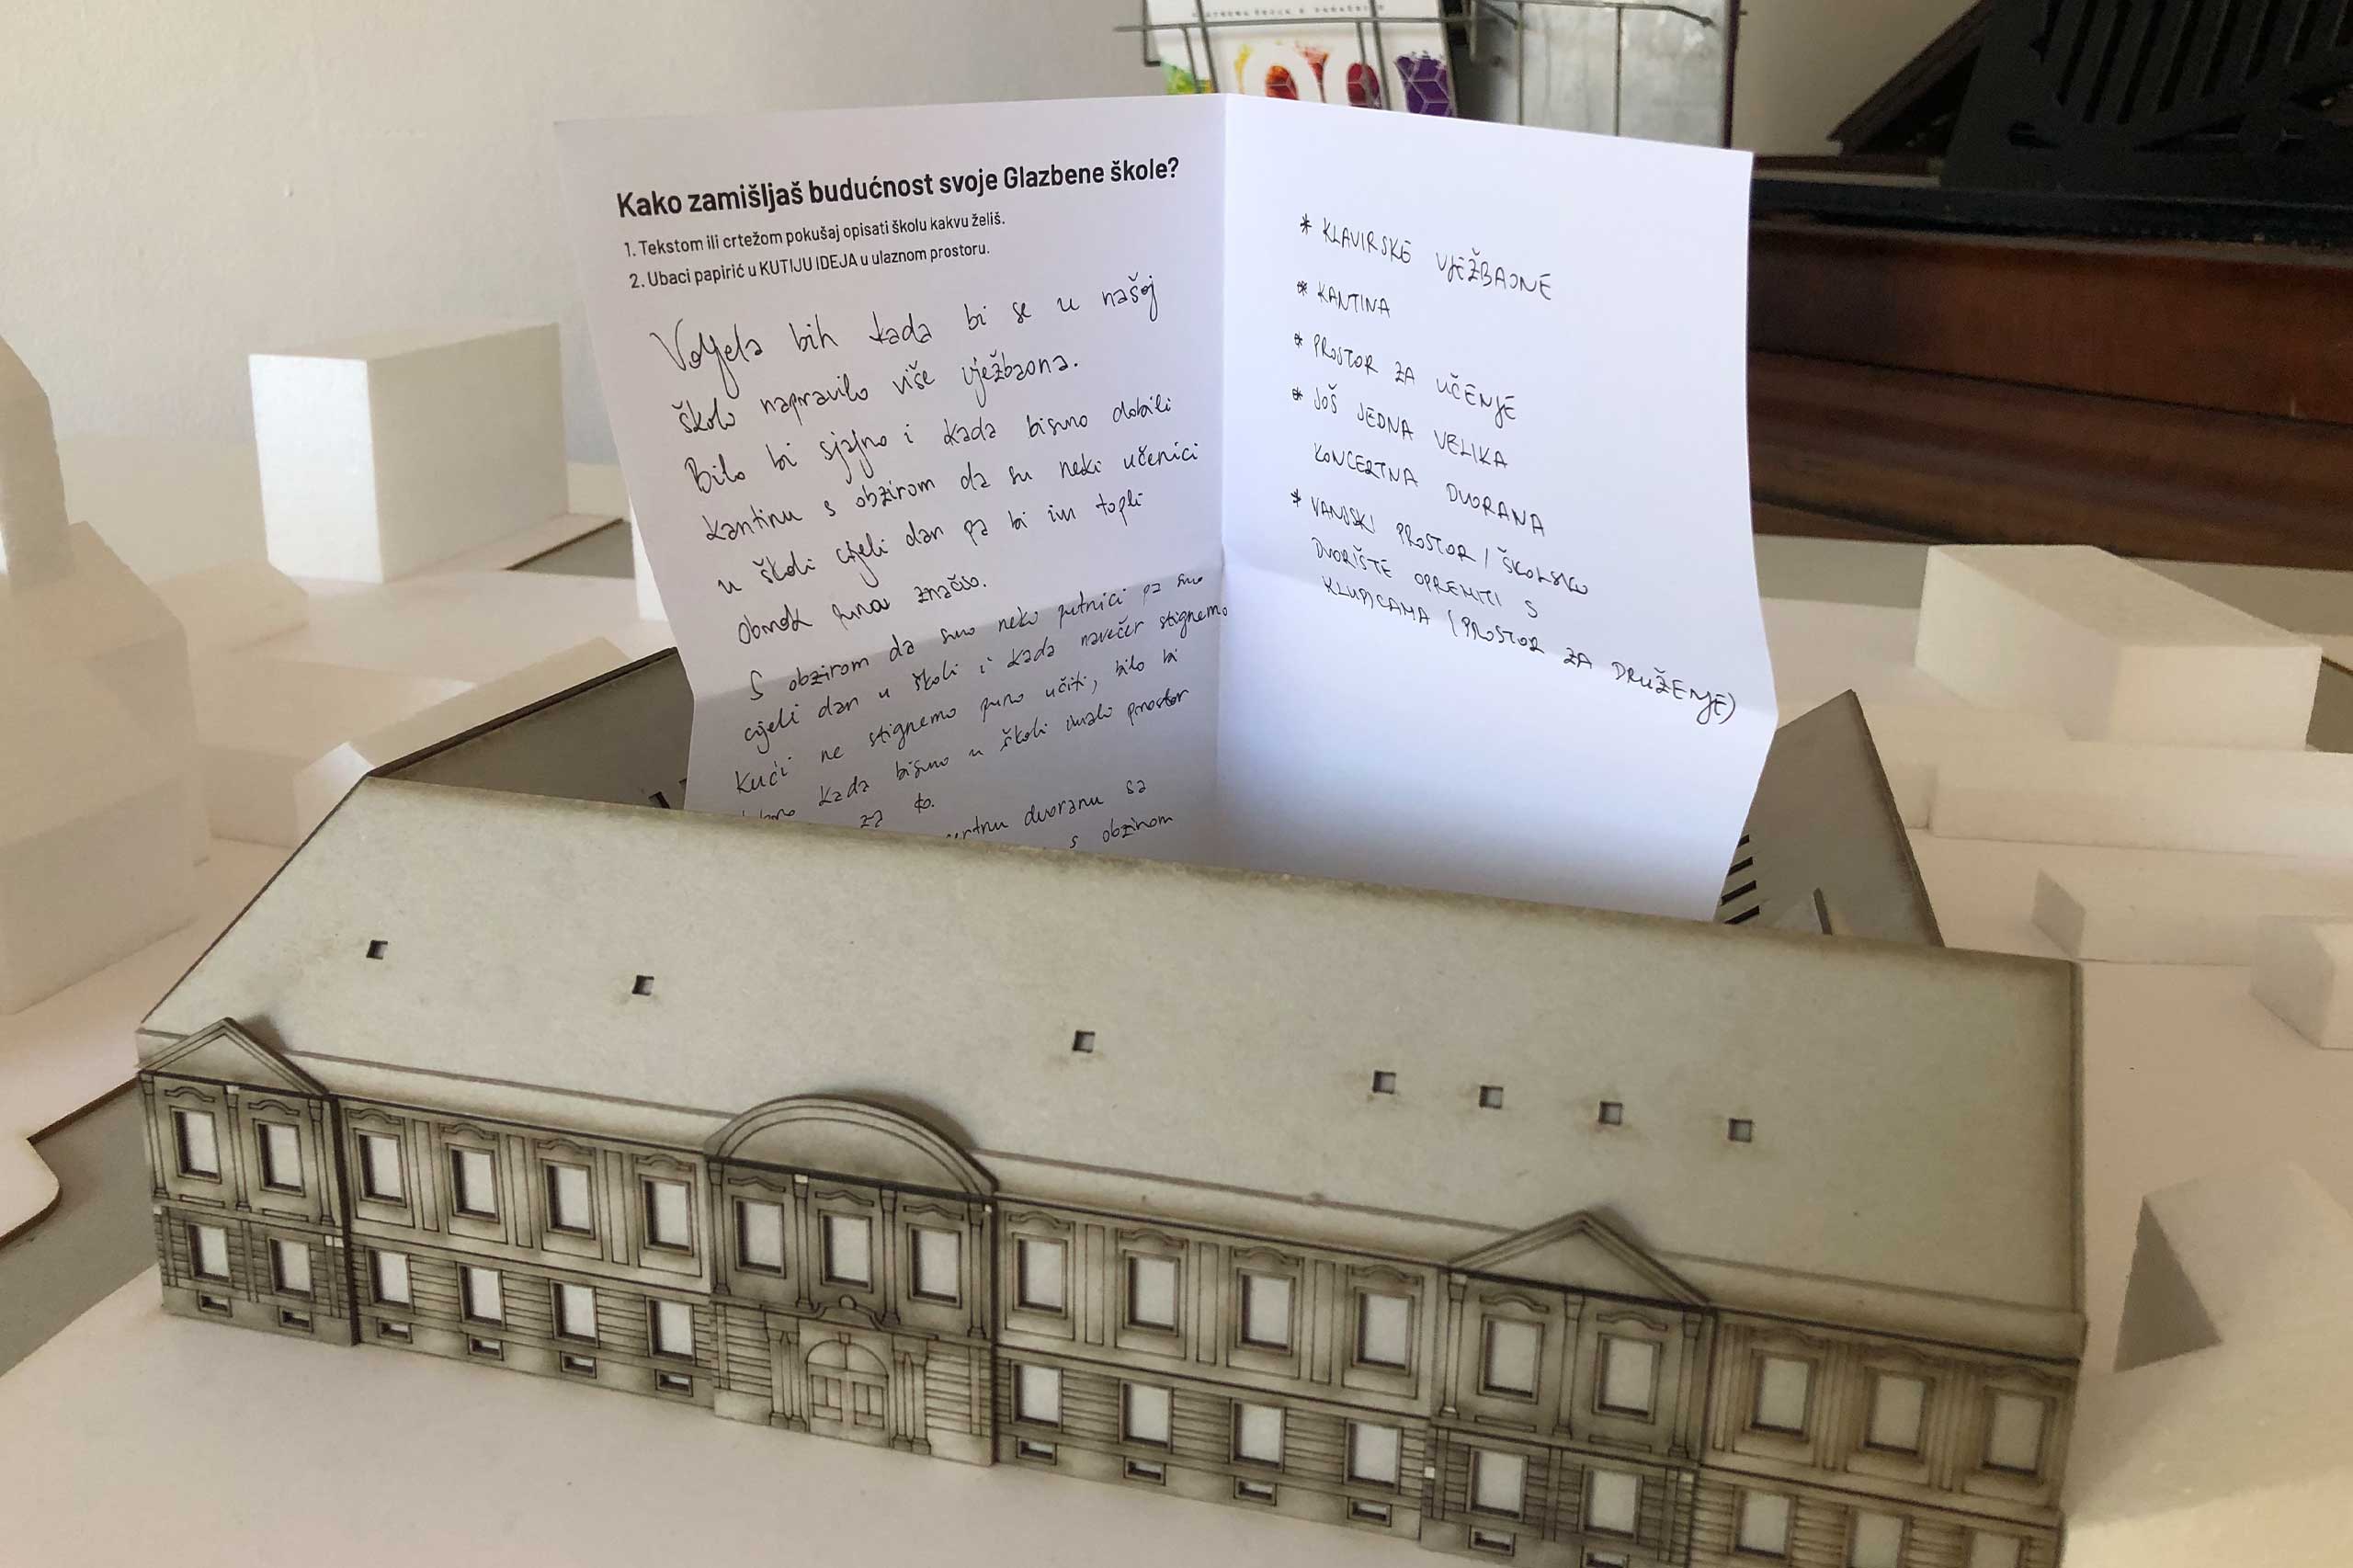 Kako zamišljaš budućnost svoje Glazbene škole?
1. Tekstom ili crtežom pokušaj opisati školu kakvu želiš.
2. Ubaci papirić u KUTIJU IDEJA u ulaznom prostoru.
Voljela bih kada bi se u našoj
školi napravilo više vježbaona.
Bilo bi sjajno i kada bismo dobili
kantinu s obzirom da su neki učenici
u školi cijeli dan pa bi im topli
obrok puno značio.
S obzirom da smo neki putnici pa smo
cijeli dan u školi i kada navečer stignemo
kući ne stignemo puno učiti, bilo bi
kada bismo u školi imali prostor
za to.
dvoranu sa
s obzirom
* KLAVIRSKE VJEŽBAONE
* KANTINA
* PROSTOR ZA UČENJE
* JOŠ JEDNA VELIKA
KONCERTNA DVORANA
* VANJSKI PROSTOR / ŠKOLSKO
DVORIŠTE OPREMITI S
KLUPICAMA (PROSTOR ZA DRUŽENJE)